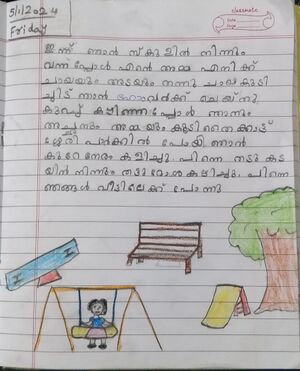 5/1/2024
Friday
classmate
Date
Page
ഇന്ന് ഞാൻ സ്കൂളിൽ നിന്നും
വന്നപ്പോൾ എന്റെ അമ്മ എനിക്ക്
ചായയും അടയും തന്നു ചായ കുടി
ച്ചിട് ഞാൻ ഹോംവർക്ക് ചെയ്തു
കുറച്ച് കഴിഞ്ഞപ്പോൾ ഞാനും
അച്ഛനും അമ്മയും കൂടി തൈക്കാട്ട്
പാർക്കിൽ പോയി ഞാൻ
കുറേ നേരം കളിച്ചു പിന്നെ തട്ടു കട
യിൽ നിന്നും തട്ടു ദോശ കഴിച്ചു പിന്നെ
ഞങ്ങൾ വീടിലേക്ക് പോന്നു